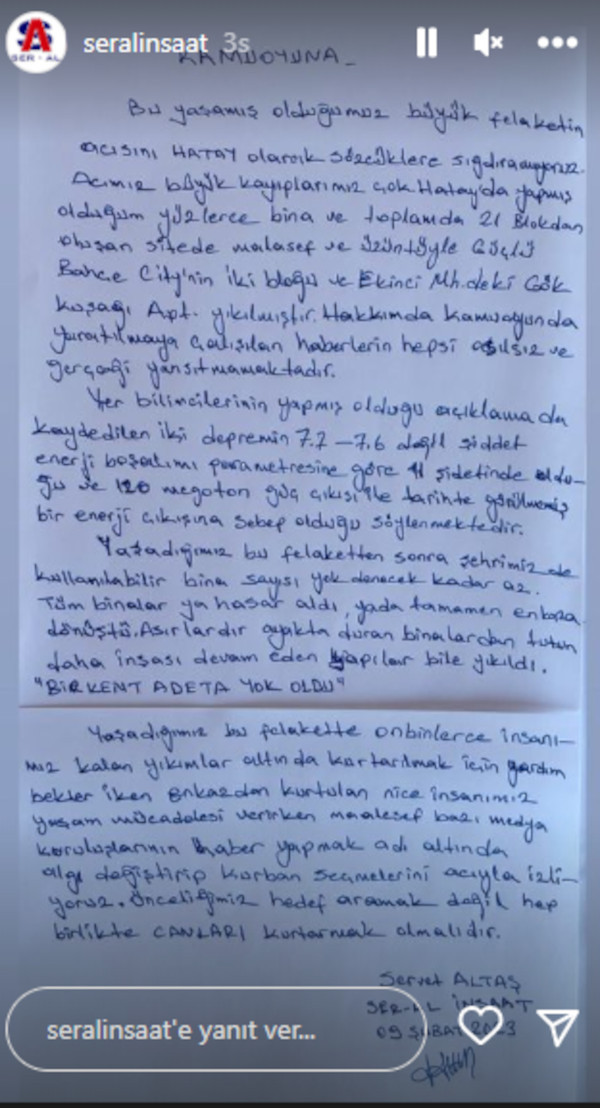 seralinsaat 3s
SER - AL
KAMUOYUNA_
Bu yaşamış olduğumuz büyük felaketin
acısını HATAY olarak sözcüklere sığdıramıyoruz.
Acımız büyük kayıplarımız çok. Hatay'da yapmış
olduğum yüzlerce bina ve toplamda 21 Blokdan
oluşan sitede malasef ve üzüntüyle Güçlü
Bahçe City'nin iki bloğu ve Ekinci Mh.deki Gök
kuşağı Apt. yıkılmıştır. Hakkımda kamuoyunda
yaratılmaya çalışılan haberlerin hepsi asılsız ve
gerçeği yansıtmamaktadır.
Yer bilimcilerinin yapmış olduğu açıklamada
kaydedilen iki depremin 7.7 - 7.6 değil şiddet
enerji boşalımı parametresine göre 11 şidetinde oldu-
ğu ve 120 megaton güç çıkışı ile tarihte görülmemiş
bir enerji çıkışına sebep olduğu söylenmektedir.
Yaşadığımız bu felaketten sonra şehrimizde
kullanılabilir bina sayısı yok denecek kadar az.
Tüm binalar ya hasar aldı, yada tamamen enkaza
dönüştü. Asırlardır ayakta duran binalardan tutun
daha inşası devam eden yapılar bile yıkıldı.
"BİR KENT ADETA YOK OLDU"
Yaşadığımız bu felakette onbinlerce insanı-
mız kalan yıkımlar altında kurtarılmak için yardım
bekler iken enkazdan kurtulan nice insanımız
yaşam mücadelesi verirken maalesef bazı medya
kuruluşlarının haber yapmak adı altında
algı değiştirip kurban seçmelerini acıyla izli-
yoruz. Önceliğimiz hedef aramak değil hep
birlikte CANLARI kurtarmak olmalıdır.
Servet ALTAŞ
SER-AL İNŞAAT
09 ŞUBAT 2023
seralinsaat'e yanıt ver...